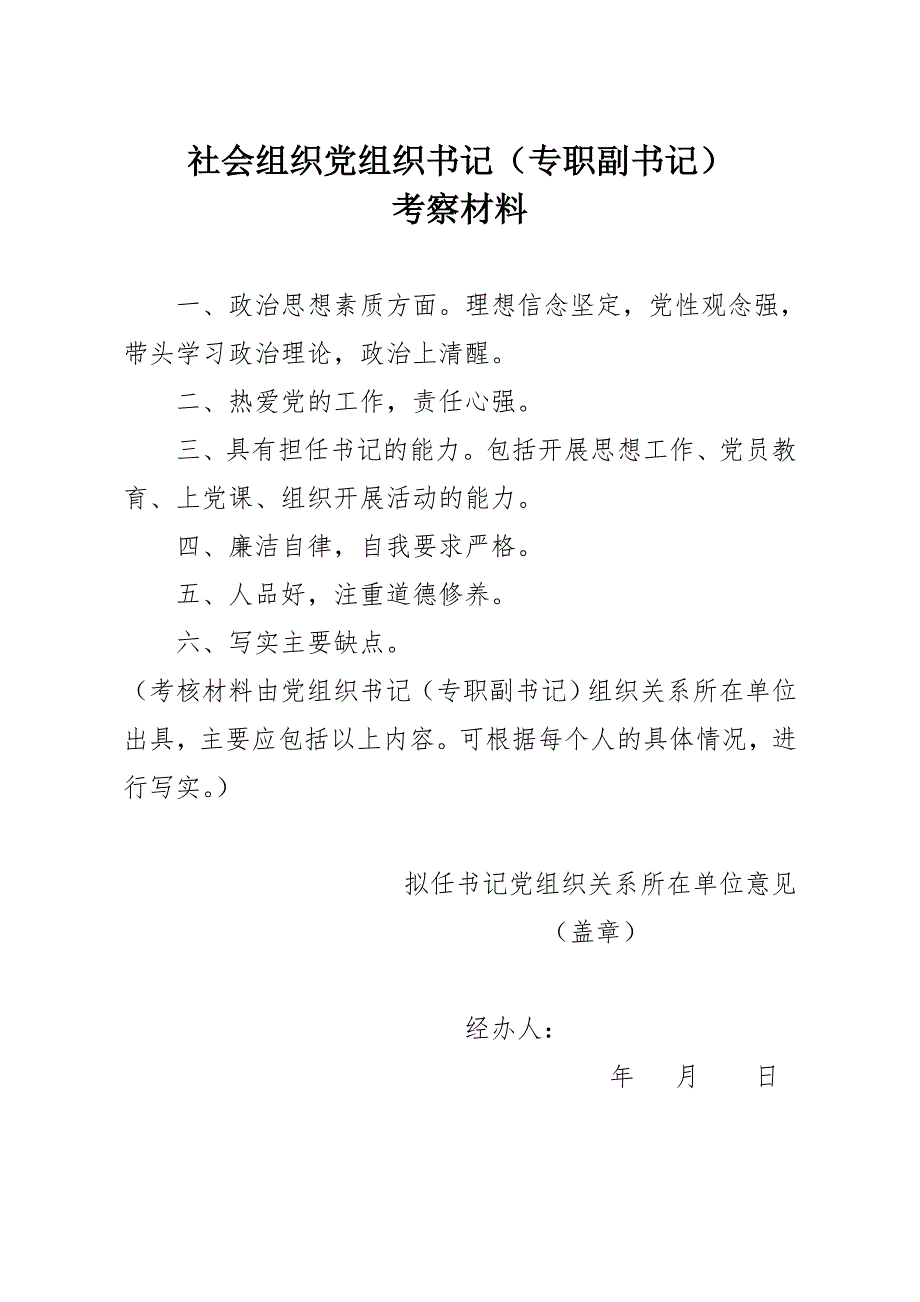 社会组织党组织书记（专职副书记）
考察材料
一、政治思想素质方面。理想信念坚定，党性观念强，
带头学习政治理论，政治上清醒。
二、热爱党的工作，责任心强。
三、具有担任书记的能力。包括开展思想工作、党员教
育、上党课、组织开展活动的能力。
四、廉洁自律，自我要求严格。
五、人品好，注重道德修养。
六、写实主要缺点。
（考核材料由党组织书记（专职副书记）组织关系所在单位
出具，主要应包括以上内容。可根据每个人的具体情况，进
行写实。）
拟任书记党组织关系所在单位意见
（盖章）
经办人：
年 月 日